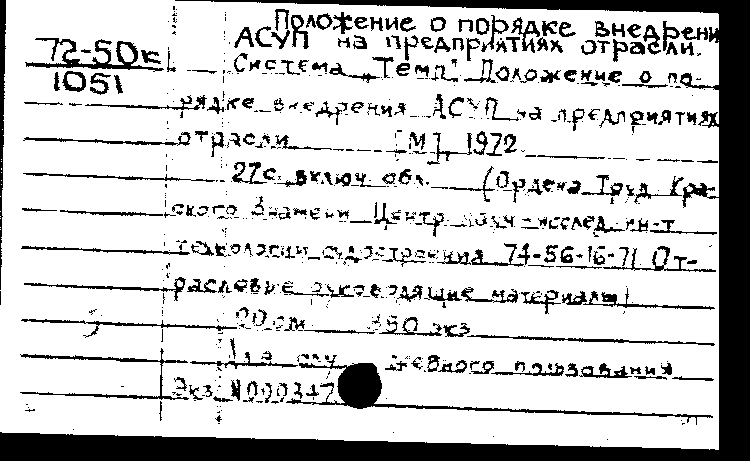 Положение о порядке внедрени
АСУП на предприятиях отрасли.
72-50к
1051
Система „Темп". Положение о по-
рядке внедрения АСУП на предприятиях
отрасли. [М], 1972.
27с. включ. обл. (Ордена Труд. Кра-
ского Знамени Центр. науч-исслед. ин-т
технологии судостроения 74-56-16-71 От-
раслевые руководящие материалы)
20 см. 350 экз
Для слу жебного пользования
Экз. N000347